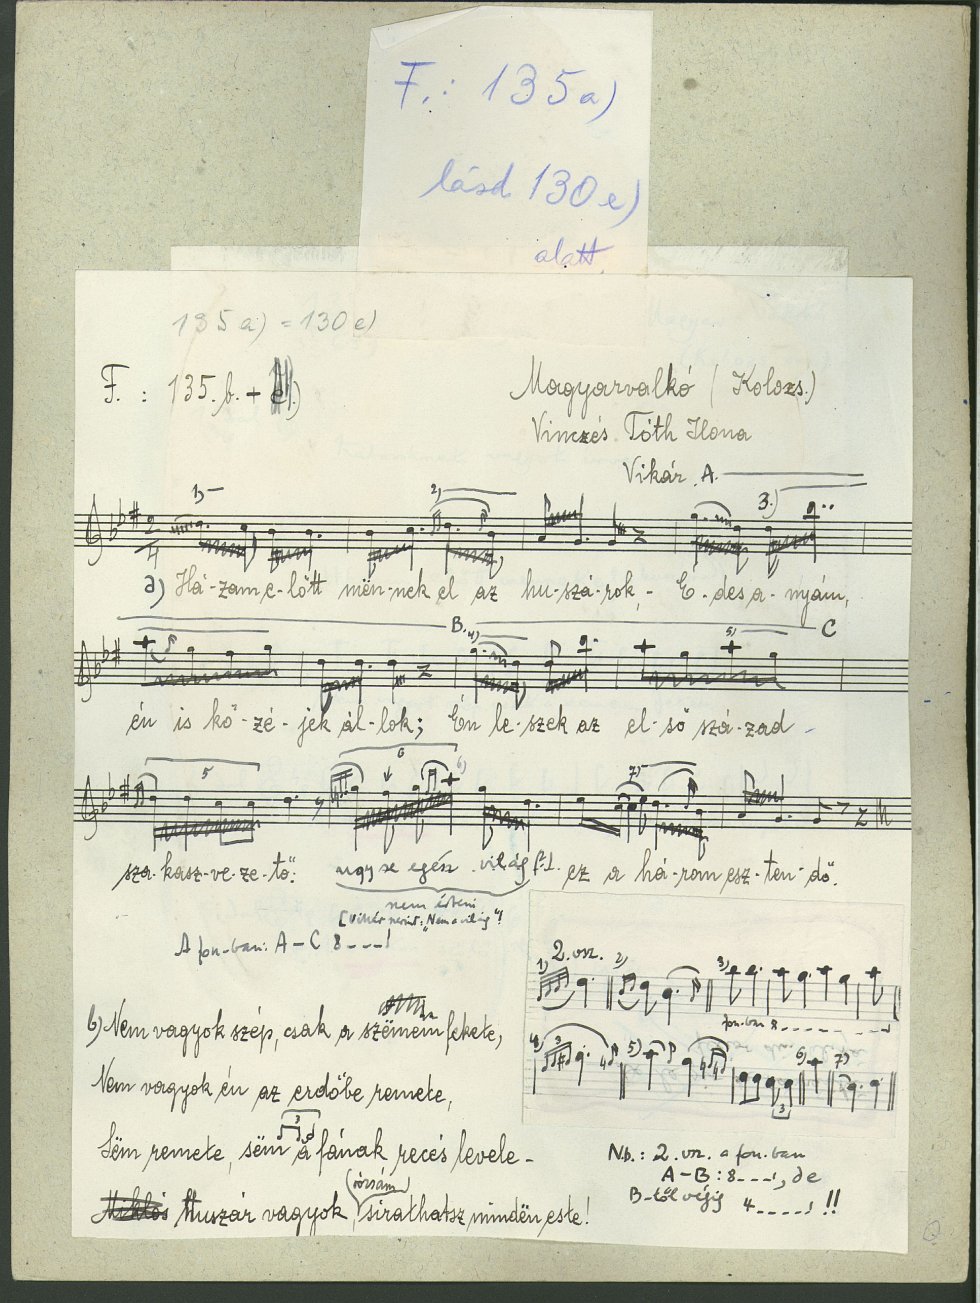 F.: 135 a)
lásd 130 e)
alatt.
135 a) = 130 e)
F. : 135. b. +
Magyarvalkó ( Kolozs.)
Vinczés Tóth Ilona
Vikár A.
1)
2)
3.)
a) Há-zam e-lőtt mën-nek el az hu-szá-rok, - E-des a-nyám,
B. 4) 5) C
én is kö-zé-jek ál-lok; Én le-szek az el-ső szá-zad
5 6 6) 7)
sza-kasz-ve-ze-tő: ugy se egész világ ez a há-rom esz-ten-dő.
nem érteni
[Vikár szerint: "Nem a világ"!
A fon-ban: A – C 8 - - - !
2. vsz.
1) 2) 3)
fon-ban 8 - - - - -
4) 3 5) 6) 7)
3
b) Nem vagyok szép, csak a szëmem fekete,
Nem vagyok én az erdőbe remete,
3
Sëm remete, sëm a fának recés levele -
rózsám
Miklós Huszár vagyok, sirathatsz mindën este!
Nb.: 2. vsz. a fon-ban
A – B : 8 - - - !, de
B-től végig 4 - - - - ! !!